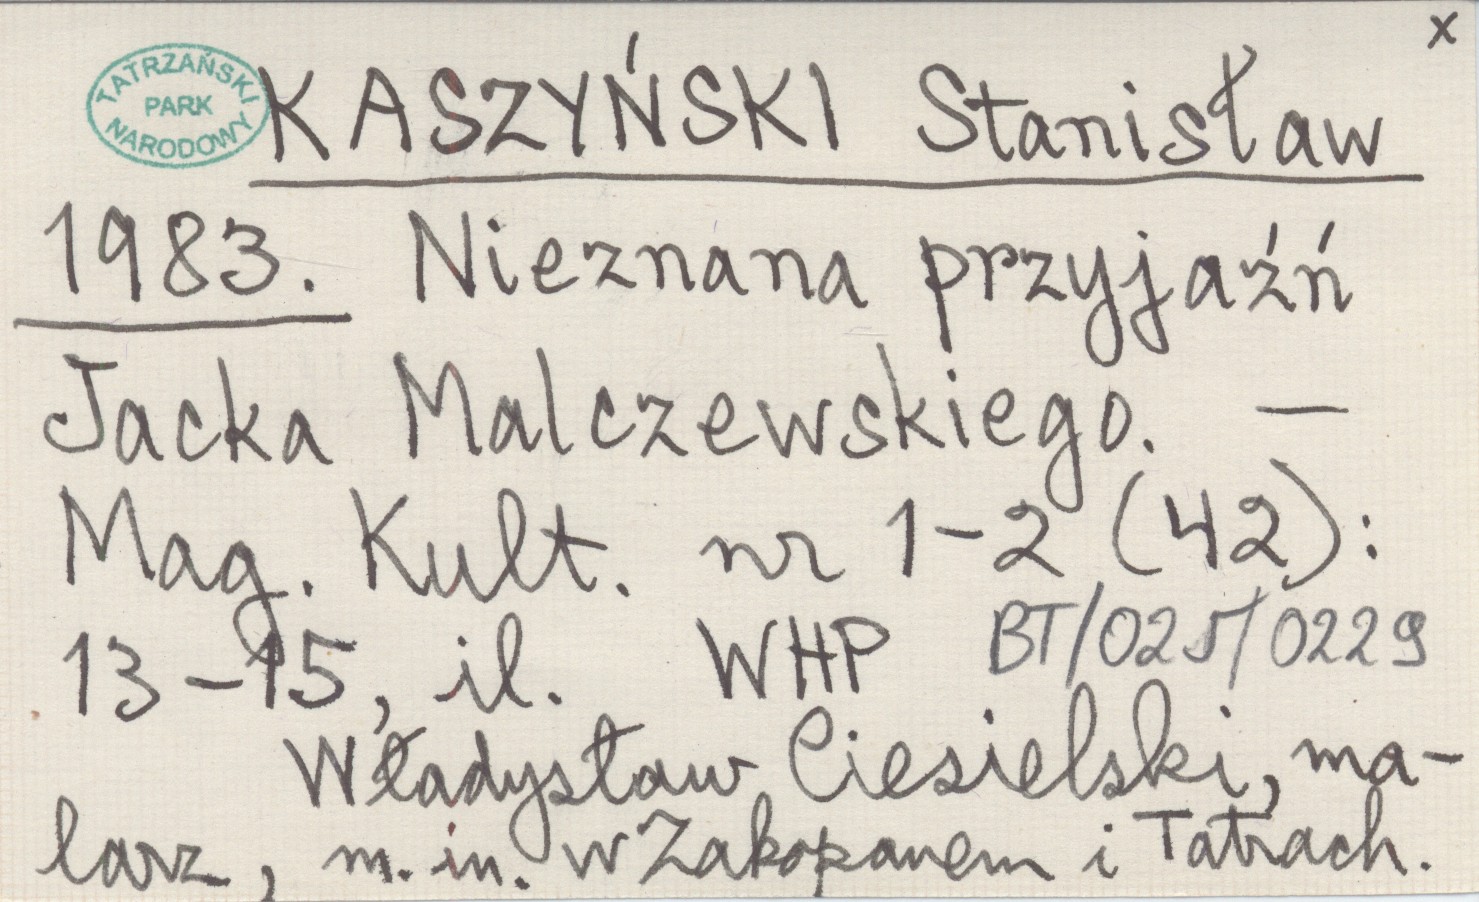 x
TATRZAŃSKI
PARK
NARODOWY
KASZYŃSKI Stanisław
1983. Nieznana przyjaźń
Jacka Malczewskiego. —
Mag. Kult. nr 1-2 (42):
13-15, il. WHP BT/025/0229
Władysław Ciesielski, ma-
larz, m.in. w Zakopanem i Tatrach.